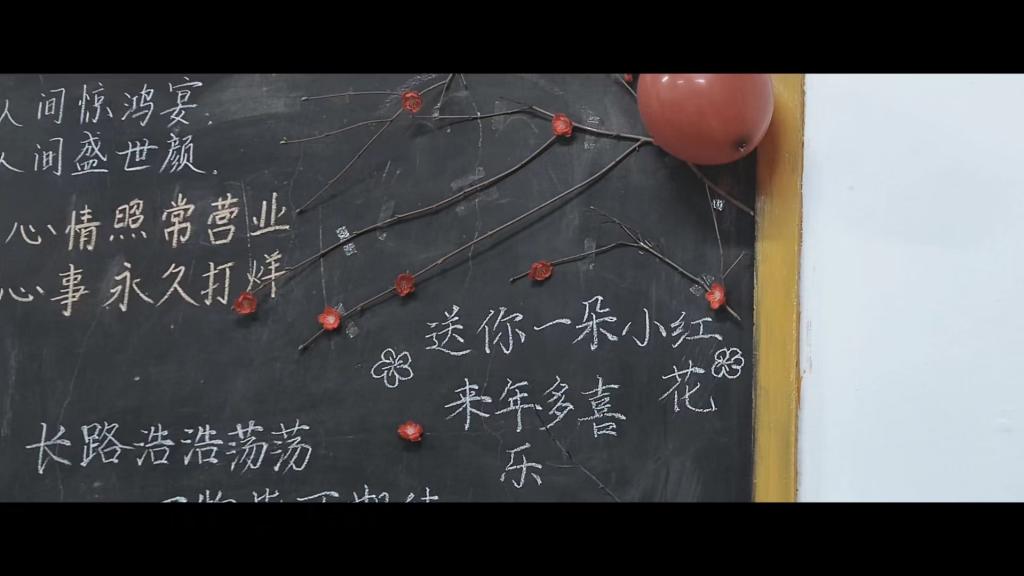 人间惊鸿宴.
人间盛世颜.
心情照常营业
心事永久打烊
送你一朵小红
花
来年多喜
乐
长路浩浩荡荡
万物皆可期待